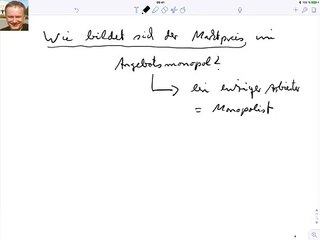 Wie bildet sich der Marktpreis im
Angebotsmonopol?
ein einziger Anbieter
= Monopolist